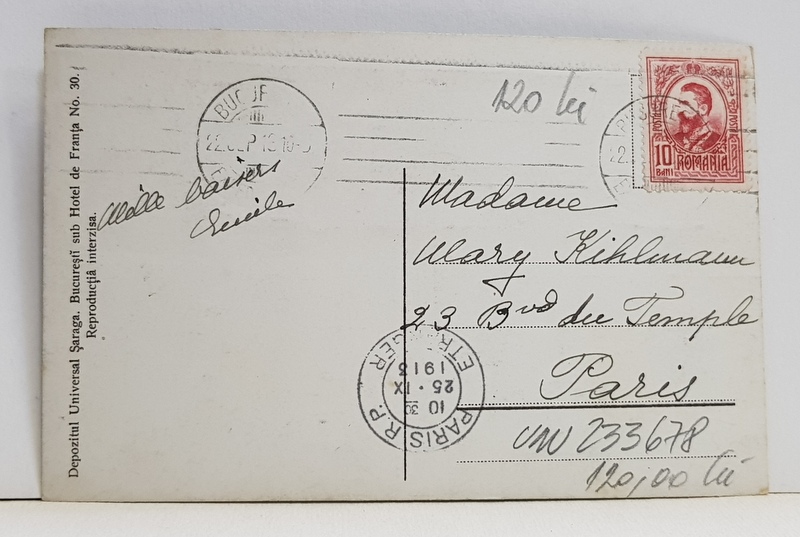 Depozitul Universal Șaraga. București sub Hotel de Franța No. 30.
Reproducția interzisa.
22.SEP 13 10
Mille baisers
Emile
120 lei
10
BANI
ROMANIA
POSTA
22.
Madame
Mary Kihlmann
23 Bvd du Temple
Paris
PARIS R.P.
ETRANGER
10 30
25 · IX
1913
UNV 233678
120,00 lei